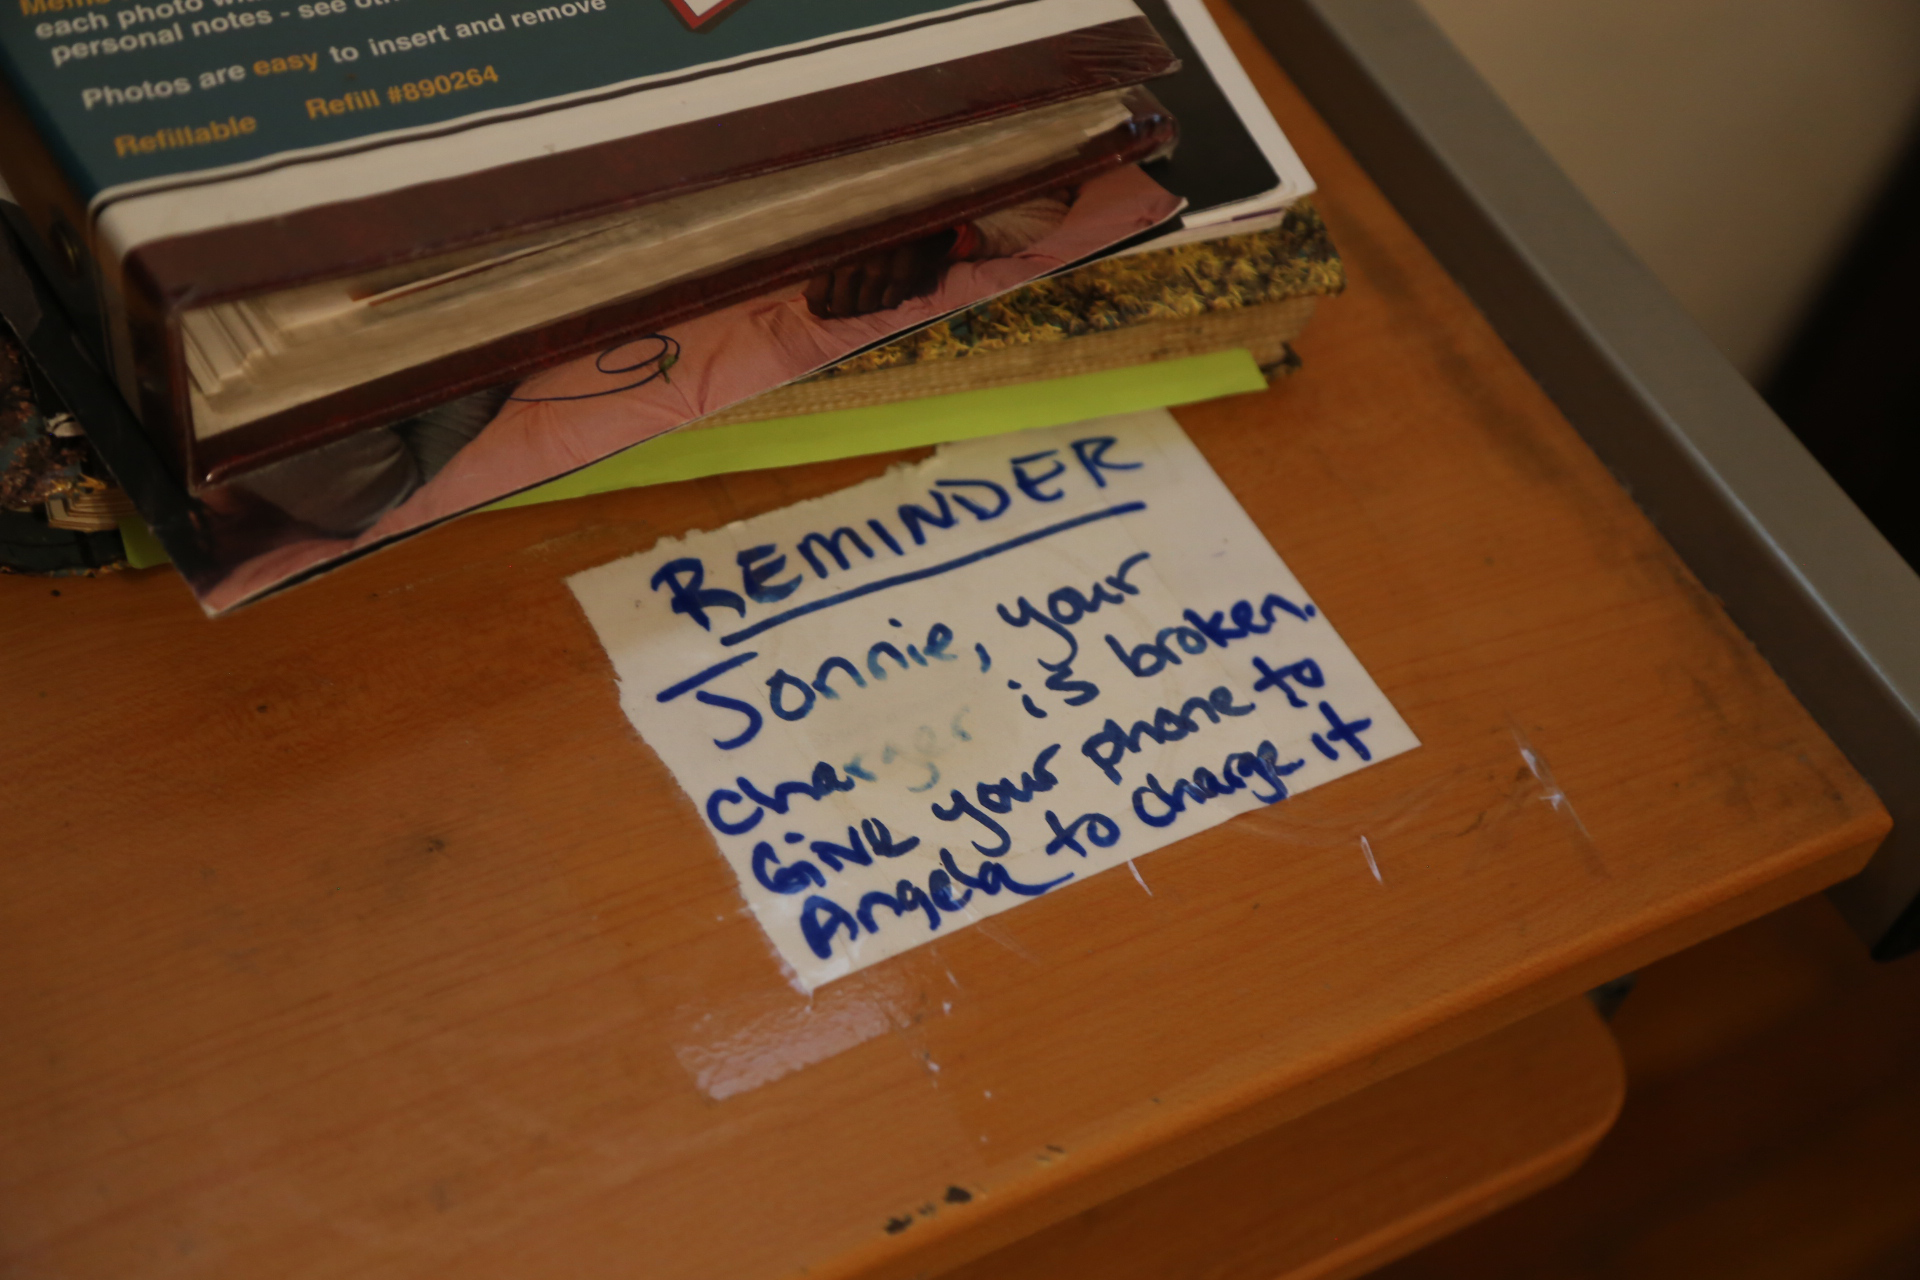 each photo
personal notes - see
Photos are easy to insert and remove
Refillable Refill #890264
REMINDER
Jonnie, your
charger is broken.
Give your phone to
Angela to charge it